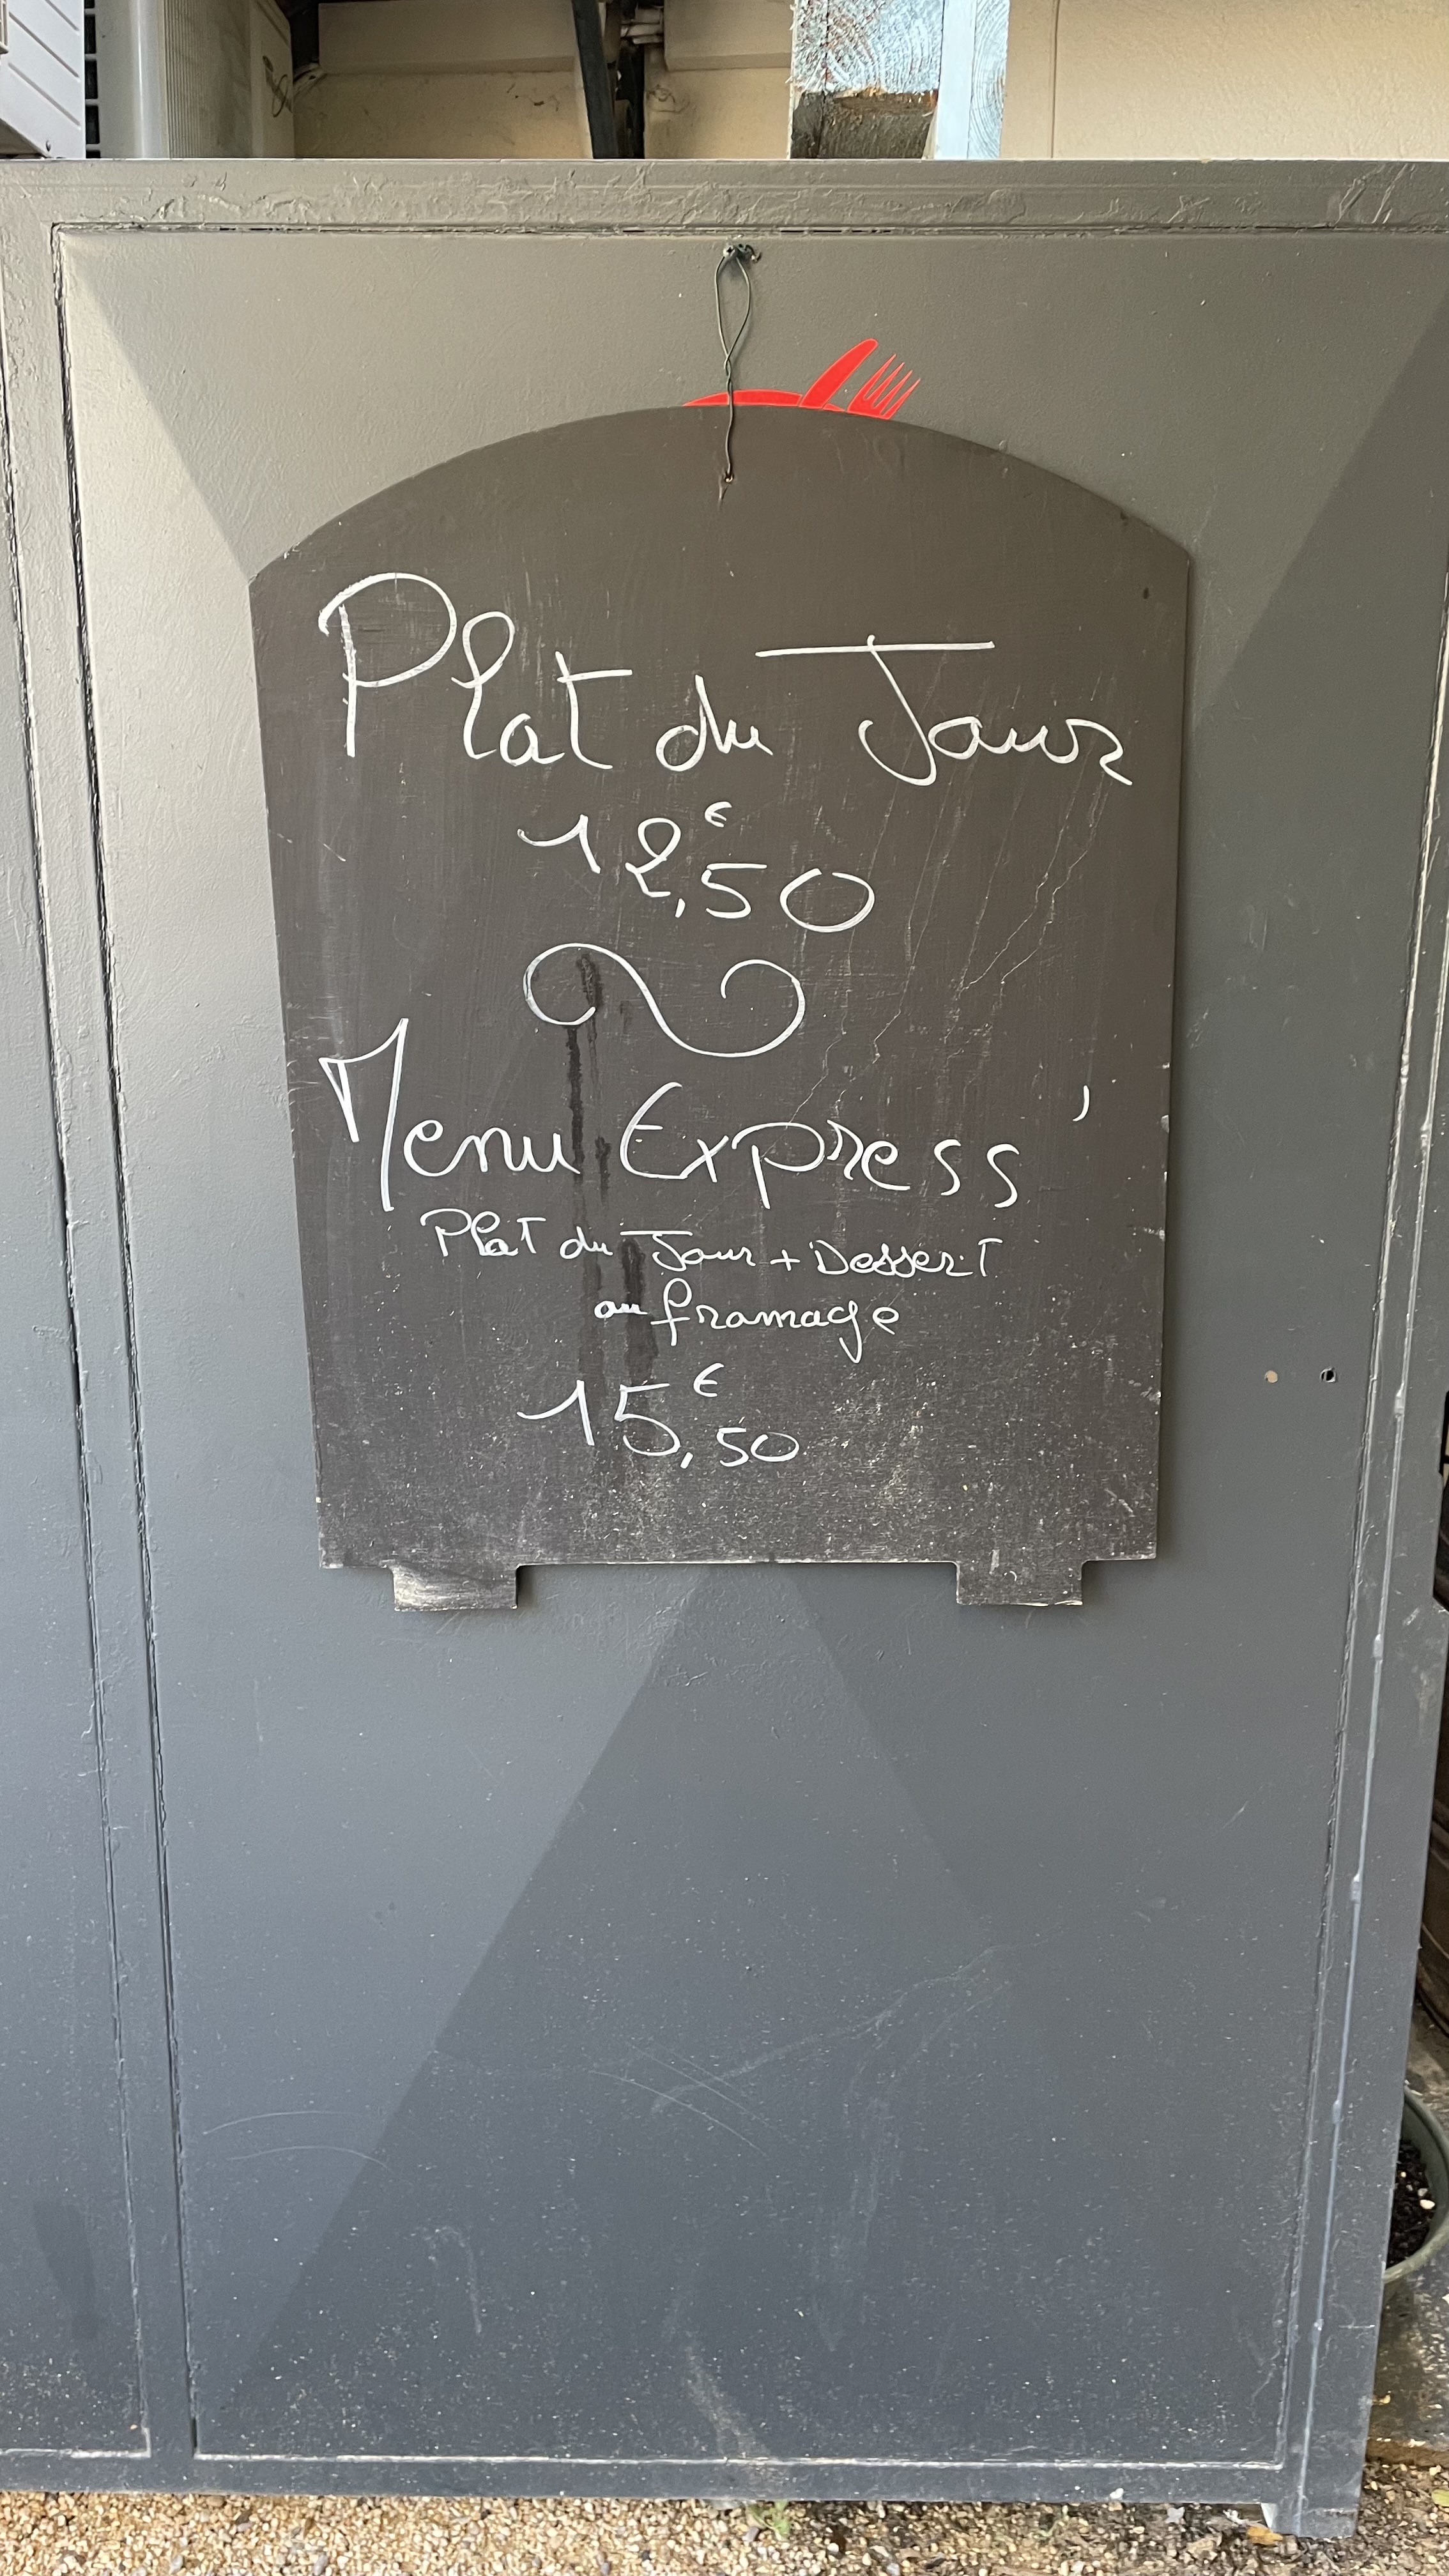 Plat du Jour
12,50€
Menu Express'
Plat du Jour + Dessert
ou fromage
15,50€